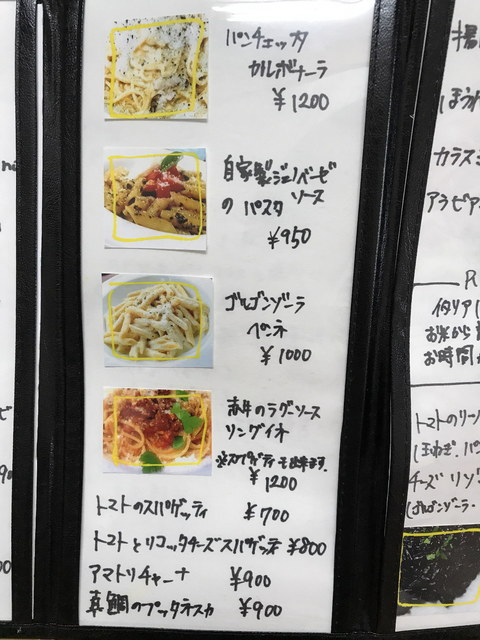 パンチェッタ
カルボナーラ
¥1200
自家製ジェノベーゼ
ソース
の パスタ
¥950
ゴルゴンゾーラ
ペンネ
¥1000
赤牛のラグーソース
リングイネ
※スパゲティーも出来ます。
¥1200
トマトのスパゲッティ ¥700
トマトとリコッタチーズスパゲッティ ¥800
アマトリチャーナ ¥900
真鯛のプッタネスカ ¥900
カラス
アラビア
R
イタリア
お米から
お時間
トマトのリ
チーズ リゾ